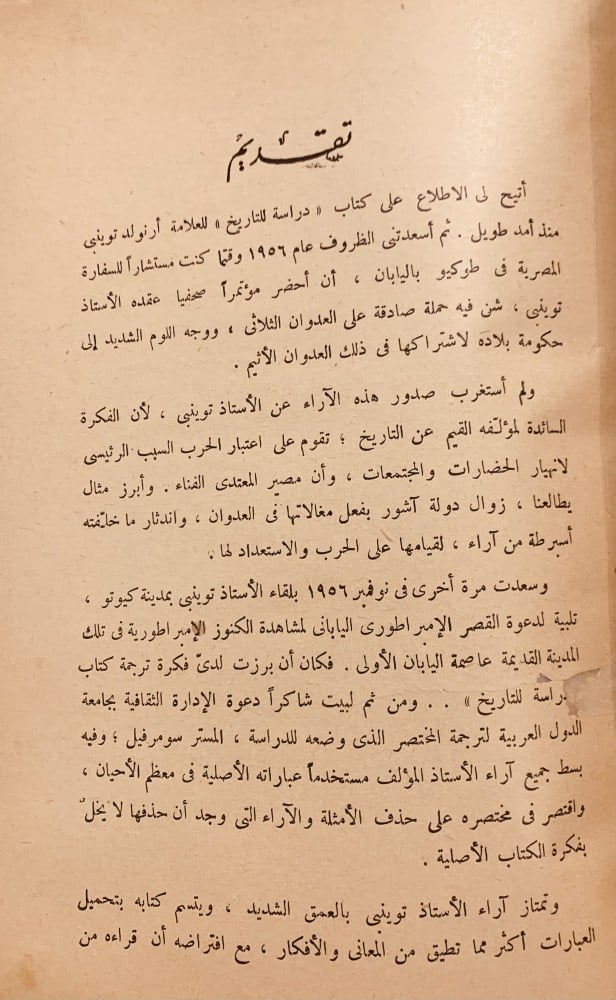 تقديم
أتيح لى الاطلاع على كتاب « دراسة للتاريخ » للعلامة أرنولد توينبى
منذ أمد طويل . ثم أسعدتنى الظروف عام ١٩٥٦ وقتما كنت مستشاراً للسفارة
المصرية فى طوكيو باليابان ، أن أحضر مؤتمراً صحفيا عقده الأستاذ
توينبى ، شن فيه حملة صادقة على العدوان الثلاثى ، ووجه اللوم الشديد إلى
حكومة بلاده لاشتراكها فى ذلك العدوان الأثيم .
ولم أستغرب صدور هذه الآراء عن الأستاذ توينبى ، لأن الفكرة
السائدة لمؤلّفه القيم عن التاريخ ؛ تقوم على اعتبار الحرب السبب الرئيسى
لانهيار الحضارات والمجتمعات ، وأن مصير المعتدى الفناء . وأبرز مثال
يطالعنا ، زوال دولة آشور بفعل مغالاتها فى العدوان ، واندثار ما خلّفته
أسبرطة من آراء ، لقيامها على الحرب والاستعداد لها .
وسعدت مرة أخرى فى نوفمبر ١٩٥٦ بلقاء الأستاذ توينبى بمدينة كيوتو ،
تلبية لدعوة القصر الإمبراطورى اليابانى لمشاهدة الكنوز الإمبراطورية فى تلك
المدينة القديمة عاصمة اليابان الأولى . فكان أن برزت لدىّ فكرة ترجمة كتاب
دراسة للتاريخ » . . ومن ثم لبيت شاكراً دعوة الإدارة الثقافية بجامعة
الدول العربية لترجمة المختصر الذى وضعه للدراسة ، المستر سومرفيل ؛ وفيه
بسط جميع آراء الأستاذ المؤلف مستخدماً عباراته الأصلية فى معظم الأحيان ،
واقتصر فى مختصره على حذف الأمثلة والآراء التى وجد أن حذفها لا يخلّ
بفكرة الكتاب الأصلية .
وتمتاز آراء الأستاذ توينبى بالعمق الشديد ، ويتسم كتابه بتحميل
العبارات أكثر مما تطيق من المعانى والأفكار ، مع افتراضه أن قراءه من